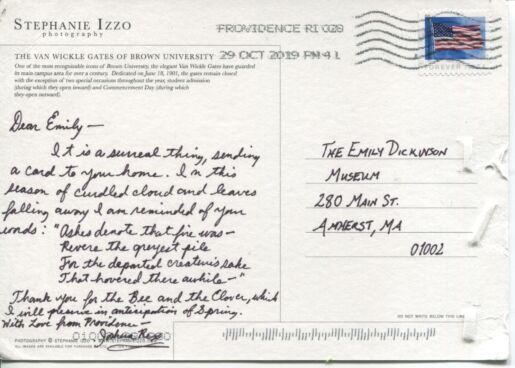 STEPHANIE IZZO
photography
PROVIDENCE RI 028
29 OCT 2019 PM 4 L
FOREVER USA
THE VAN WICKLE GATES OF BROWN UNIVERSITY
One of the most recognizable icons of Brown University, the elegant Van Wickle Gates have guarded
its main campus area for over a century. Dedicated on June 18, 1901, the gates remain closed
with the exception of two special occasions throughout the year, student admission
(during which they open inward) and Commencement Day (during which
they open outward).
Dear Emily—
It is a surreal thing, sending
a card to your home. In this
season of curdled cloud and leaves
falling away I am reminded of your
words: "Ashes denote that fire was—
Revere the greyest pile
For the departed creature's sake
That hovered there awhile—"
Thank you for the Bee and the Clover, which
I will preserve in anticipation of Spring.
With Love from Providence—
Joshua
THE EMILY DICKINSON
MUSEUM
280 MAIN ST.
AMHERST, MA
01002
DO NOT WRITE BELOW THIS LINE
PHOTOGRAPHY © STEPHANIE IZZO
ALL IMAGES ARE AVAILABLE FOR PURCHASE